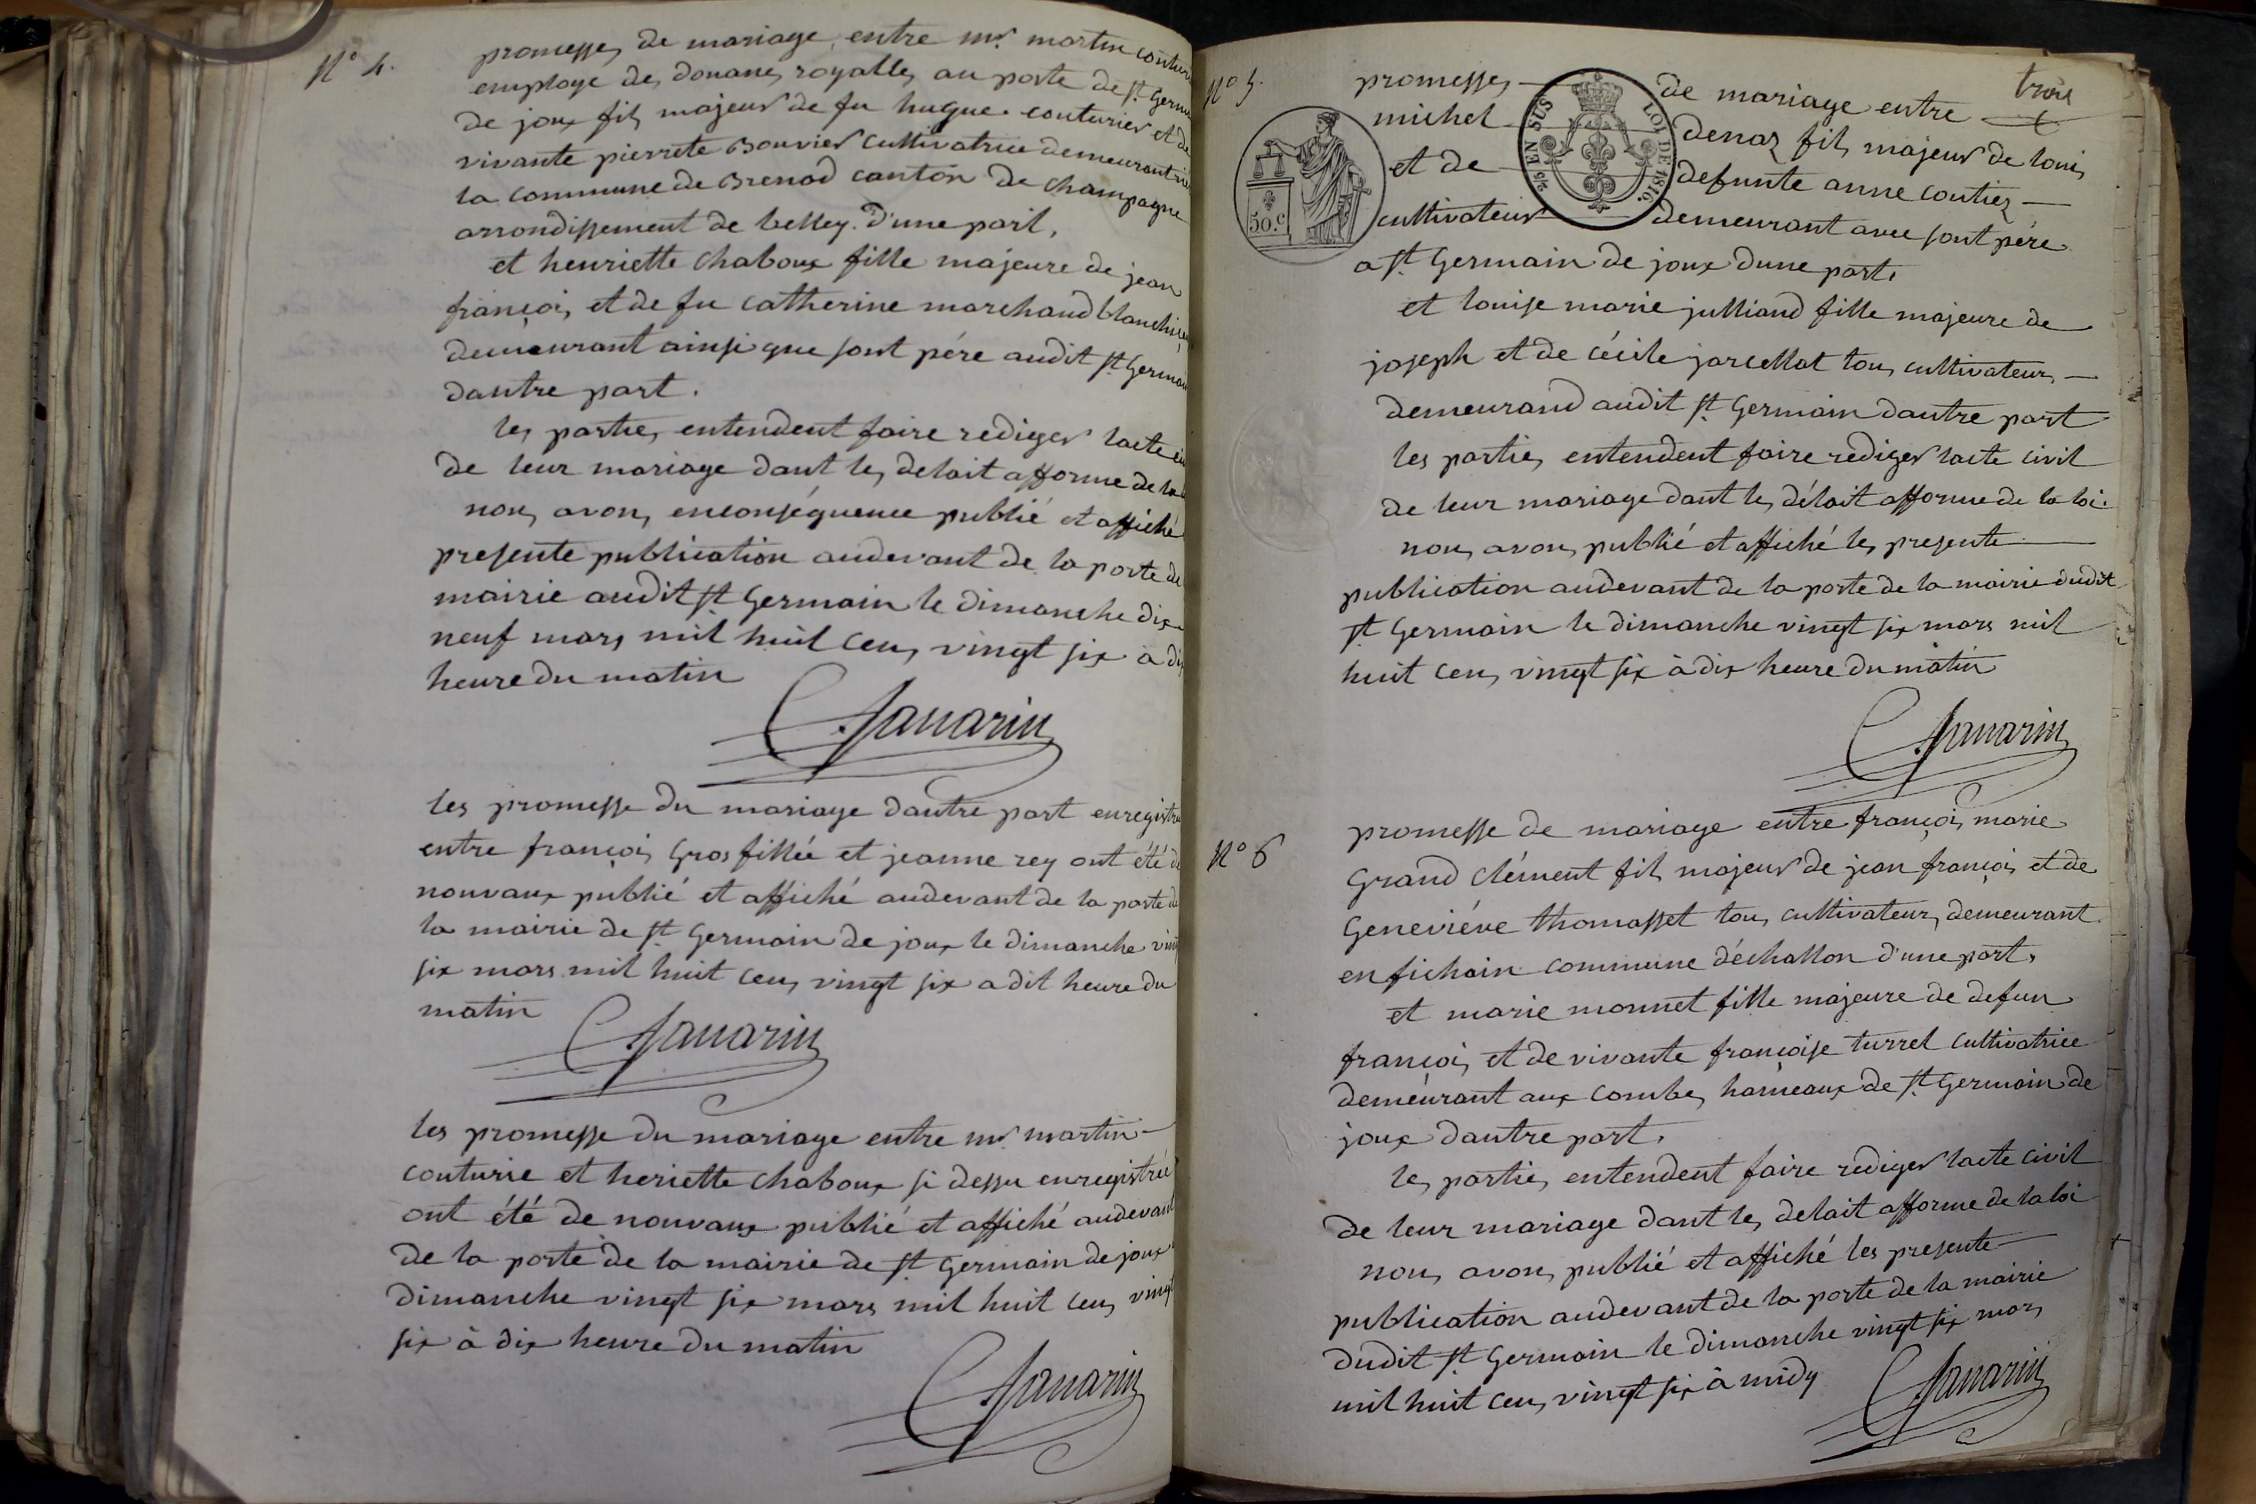 N° 4.
promesses de mariage entre mr martin
employe des douanes royalles au poste de st Germ
de joux fils majeur de fu hugue couturier et de
vivante pierrete Bouvier cultivatrice demeurant
la commune de Brenod canton de champagne
arrondissement de belley. d'une part,
et henriette chaboux fille majeure de jean
françois et de fu catherine marchand
demeurant ainsi que sont pére audit st Germain
dautre part.
les parties entendent faire rediger lacte
de leur mariage dant les delait afforme de la
nous avons enconséquence publié et affiché
presente publication audevant de la porte de
mairie audit st Germain le dimanche dix
neuf mars mil huit cens vingt six à dix
heure du matin
les promesse du mariage dautre part enregistré
entre françois Grosfillée et jeanne rey ont été de
nouvaux publié et affiché audevant de la porte de
la mairie de st Germain de joux le dimanche vingt
six mars mil huit cens vingt six a dit heure du
matin
les promesse du mariage entre mr martin
couturie et heriette chaboux si dessu enregistrée
ont été de nouvaux publié et affiché audevant
de la porte de la mairie de st Germain de joux
dimanche vingt six mars mil huit cens vingt
six à dix heure du matin
trois
N° 5.
promesses de mariage entre
michel denaz fils majeur de louis
et de defunte anne coutiez
cultivateur demeurant avec sont pére
a st Germain de joux dune part.
et louise marie julliand fille majeure de
joseph et de cécile jarcellat tous cultivateurs
demeurand audit st Germain dautre part
les parties entendent faire rediger lacte civil
de leur mariage dant les délait afforme de la loi.
nous avons publié et affiché les presente
publication audevant de la porte de la mairie dudit
st Germain le dimanche vingt six mars mil
huit cens vingt six à dix heure du matin
EN SUS LOI DE 1816.
50.c
N° 6
promesse de mariage entre françois marie
Grand clément fils majeur de jean françois et de
Geneviéve thomasset tous cultivateurs demeurant
en fichain commune déchallon d'une part.
et marie monnet fille majeure de defun
françois et de vivante françoise turrel cultivatrice
demeurant aux combes hameaux de st Germain de
joux dautre part.
les parties entendent faire rediger lacte civil
de leur mariage dant les delait afforme de la loi
nous avons publié et affiché les presente
publication audevant de la porte de la mairie
dudit st Germain le dimanche vingt six mars
mil huit cens vingt six à midy